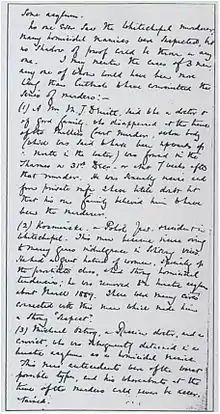 some asylum.
no one ever saw the Whitechapel murderer,
many homicidal maniacs were suspected, but
no shadow of proof could be thrown on any
one. I may mention the cases of 3 men,
any one of whom would have been more
likely than Cutbush to have committed this
series of murders:—
(1) A Mr M. J. Druitt, said to be a doctor &
of good family, who disappeared at the time
of the Miller's Court murder, whose body
(which was said to have been upwards of
a month in the water) was found in the
Thames on 31st Dec. — or about 7 weeks after
that murder. He was sexually insane and
from private info I have little doubt but
that his own family believed him to have
been the murderer.
(2) Kosminski, a Polish Jew, resident in
Whitechapel. This man became insane owing
to many years indulgence in solitary vices.
He had a great hatred of women, specially of
the prostitute class, & had strong homicidal
tendencies; he was removed to a lunatic asylum
about March 1889. There were many circs
connected with this man which made him
a strong "suspect".
(3) Michael Ostrog, a Russian doctor, and a
convict, who was subsequently detained in a
lunatic asylum as a homicidal maniac.
This man's antecedents were of the worst
possible type, and his whereabouts at the
time of the murders could never be ascer-
tained.